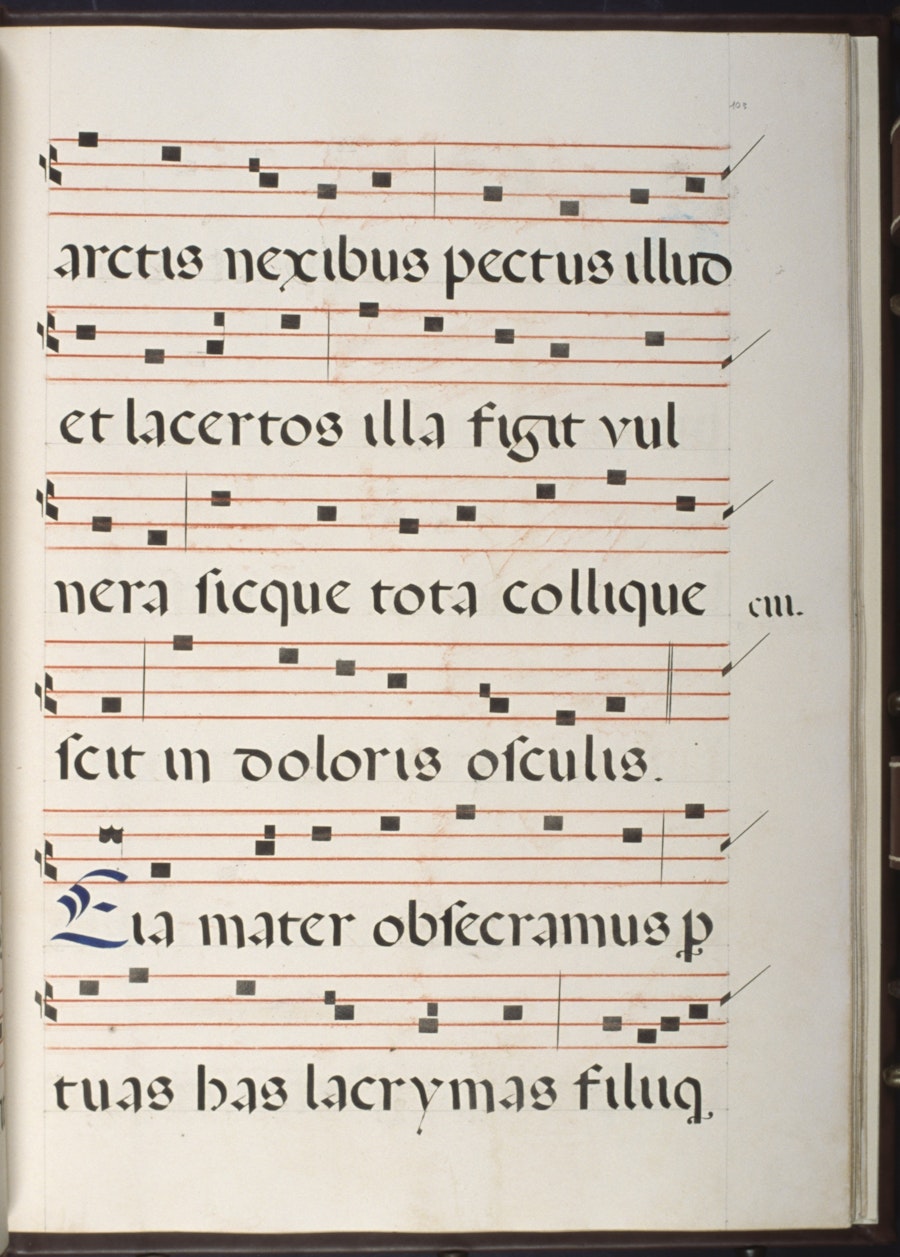 103
arctis nexibus pectus illud
et lacertos illa figit vul
nera ſicque tota collique
ciii.
ſcit in doloris oſculis.
Eia mater obſecramus ꝑ
tuas has lacrymas filiiq